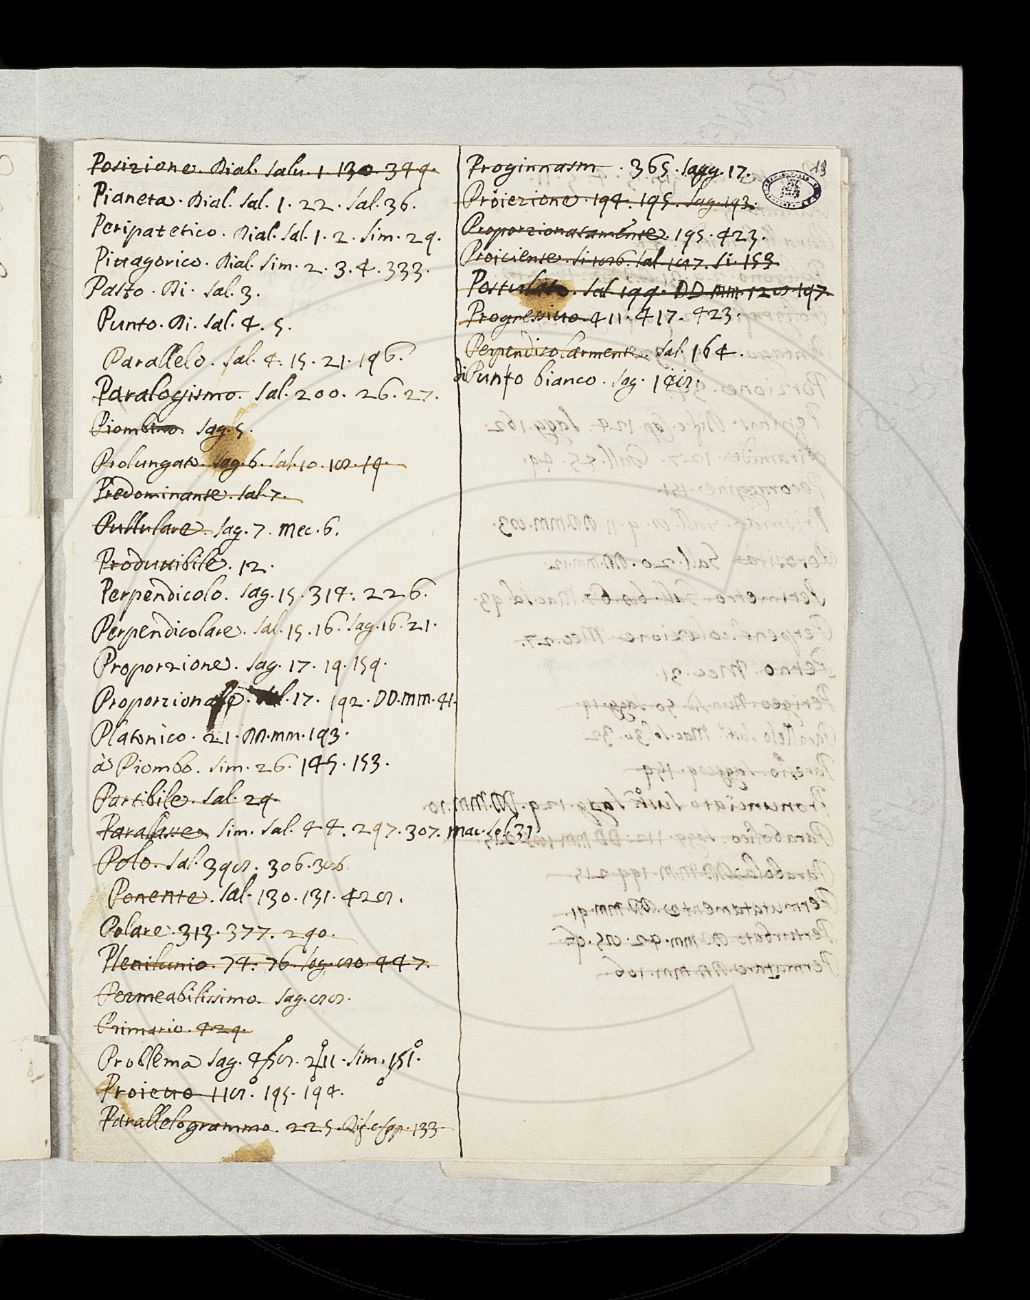 Posizione. Dial. Salv. 1. 130. 399.
Pianeta. Dial. Sal. 1. 22. Sal. 36.
Peripatetico. Dial. Sal. 1. 2. Sim. 29.
Pittagorico. Dial. Sim. 2. 3. 4. 333.
Pasto. Di. Sal. 3.
Punto. Di. Sal. 4. 5.
Parallelo. Sal. 4. 15. 21. 196.
Paralogismo. Sal. 200. 26. 27.
Piombino. Sag. 5.
Prolungato. Sag. 6. Sal. 10. 19.
Predominante. Sal. 7.
Pullulare. Sag. 7. Mec. 6.
Produttibile. 12.
Perpendicolo. Sag. 15. 314. 226.
Perpendicolare. Sal. 15. 16. Sag. 16. 21.
Proporzione. Sag. 17. 19. 159.
Proporzionale. Sal. 17. 192. DD.mm. 41.
Platonico. 21. DD.mm. 193.
à Piombo. Sim. 26. 145. 153.
Partibile. Sal. 29.
Sim. Sal. 44. 297. 307. Mac. Sol. 31.
Polo. Sal. 398. 306.
Ponente. Sal. 130. 131. 428.
Polare. 313. 377. 290.
Plenilunio. 74. 76. Sag. 447.
Permeabilissimo. Sag. 88.
Primario. 429.
Problema Sag. 211. Sim. 151.
Proietto 118. 195. 194.
Parallelogrammo. 225. 133
19
Proginnasm. 365. Sagg. 17.
Proiezione. 194. 195. Sag. 193.
Proporzionatamente 195. 423.
Proiciente. Si. 153
Postulato. Sal 199. DD.mm. 197.
Progressivo. 411. 417. 423.
Perpendicolarmente. Sal. 164.
di Punto bianco. Sag.